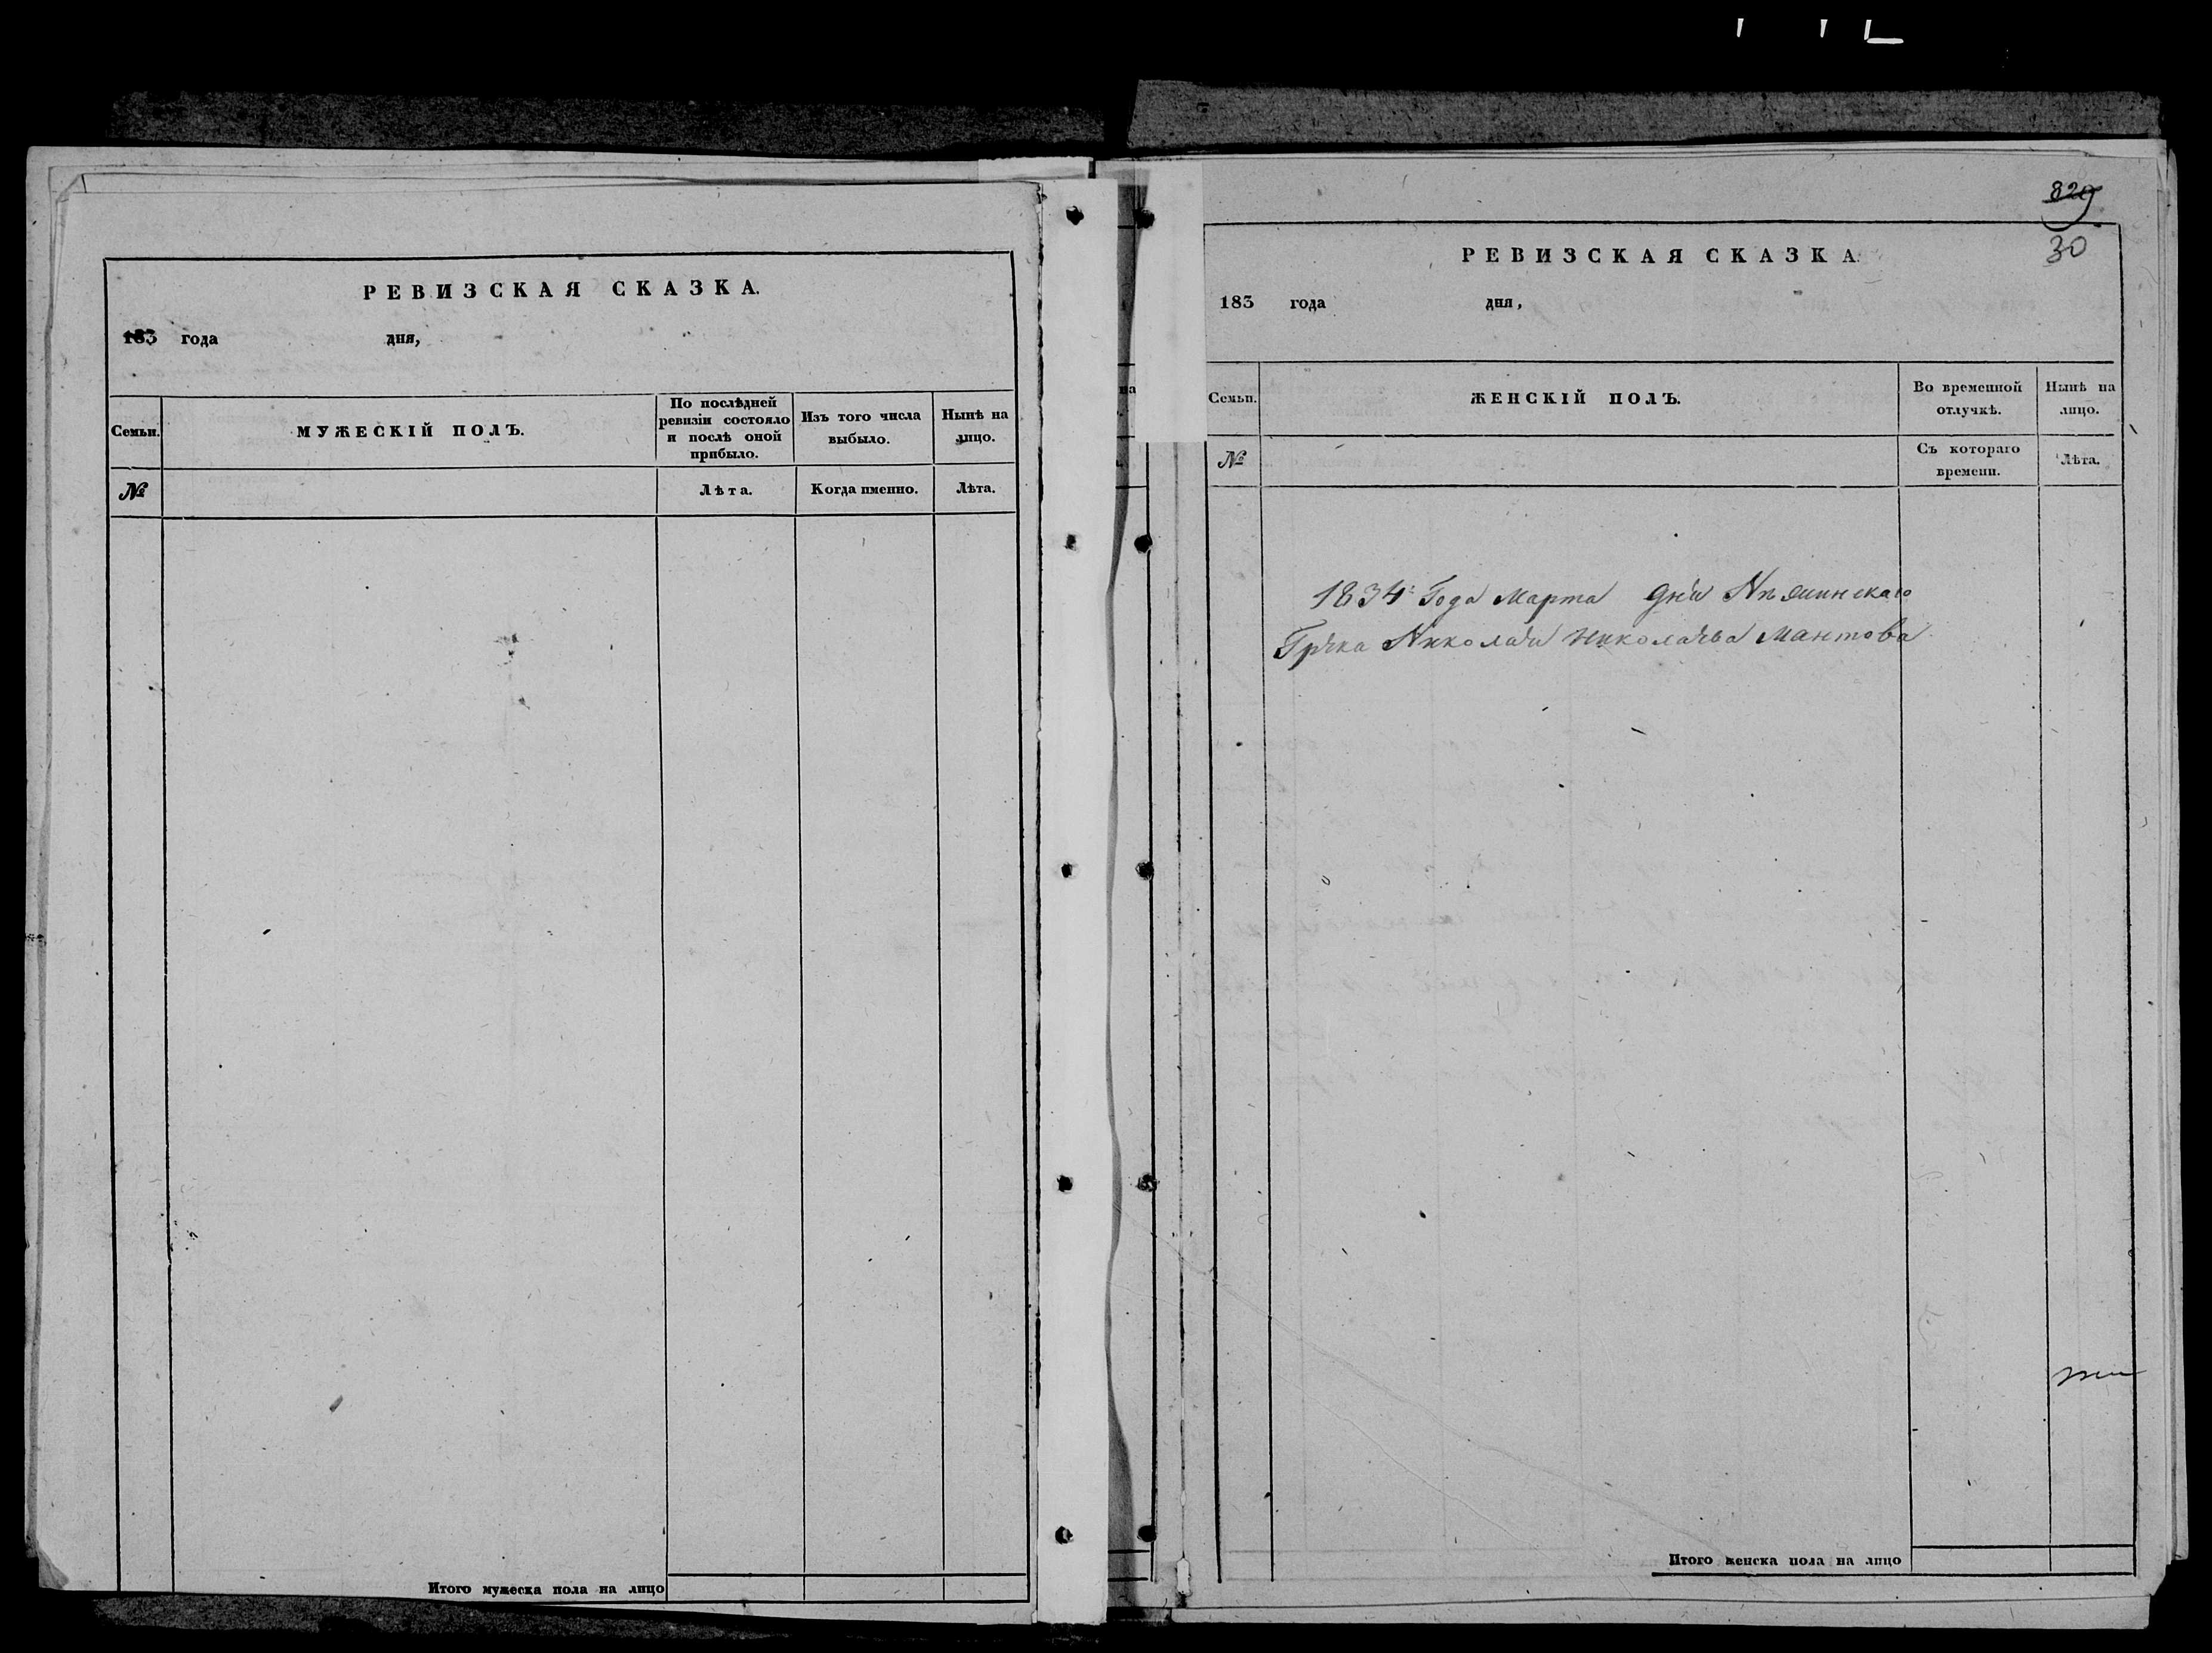 РЕВИЗСКАЯ СКАЗКА.
183 года дня,
Семьи.
МУЖЕСКІЙ ПОЛЪ.
По послѣдней ревизіи состояло и послѣ оной прибыло.
Изъ того числа выбыло.
Нынѣ на лицо.
№
Лѣта.
Когда именно.
Лѣта.
Итого мужеска пола на лицо
829
30
РЕВИЗСКАЯ СКАЗКА
183 года дня,
Семьи.
ЖЕНСКІЙ ПОЛЪ.
Во временной отлучкѣ.
Нынѣ на лицо.
№
Съ котораго времени.
Лѣта.
1834 Года Марта дня Нѣжинскаго
Грека Николая Николаева Мантова
Итого женска пола на лицо